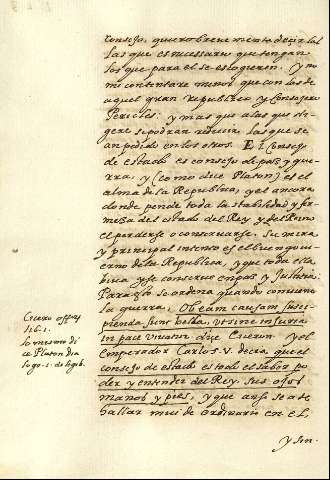 Consejo, quiero breve mente decir las
las que es necessario que tengan
los que para el se escogieren. y no
me contentare menos que con las de
aquel gran republico y consejero
Pericles: y mas que a las que di-
gere se podran reducir las que se
an pedido en los otros. El Consejo
de estado es consejo de paz y gue-
rra. y (como dice Platon) es el
alma de la Republica, y el ancora
donde pende toda la stabilidad y fir-
meza del estado del Rey y del Reyno
el perderse o conservarse. Su mira
y principal intento es el buen goui-
erno de la Republica, y que toda ella
biva y se conserve en paz y Justicia:
Para esto se ordena quando conviene
la guerra. Ob eam causam susci-
pienda sunt bella, ut sine injuria
in pace vivatur dice Ciceron. y el
emperador Carlos .V. decia, que el
consejo de estado es todo el saber, po
der y entender del Rey. sus ojos
manos y pies, y que ansi se a de
hallar mui de ordinario en el.
y sin
Cicero offic.
lib. 1.
lo mesmo di
ce Platon dia
logo. 1. de legib.